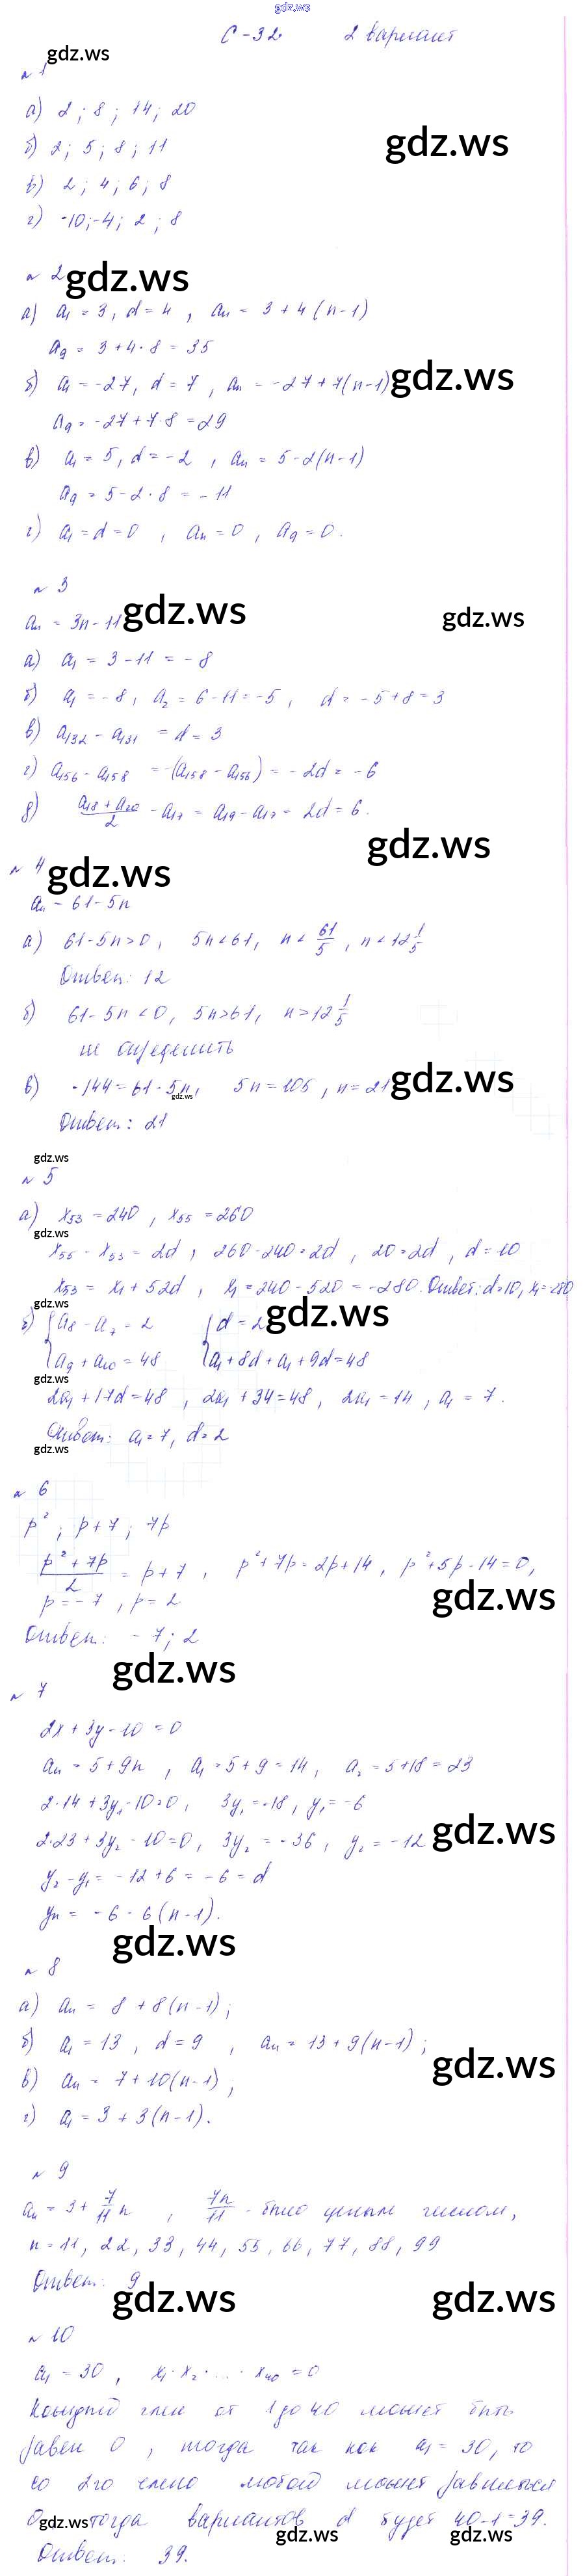 gdz.ws
С-32 2 вариант
gdz.ws
№ 1
а) 2 ; 8 ; 14 ; 20
gdz.ws
б) 2 ; 5 ; 8 ; 11
в) 2 ; 4 ; 6 ; 8
г) -10 ; -4 ; 2 ; 8
№ 2
gdz.ws
а) a₁ = 3, d = 4 , aₙ = 3 + 4(n-1)
a₉ = 3 + 4·8 = 35
б) a₁ = -27, d = 7 , aₙ = -27 + 7(n-1)
gdz.ws
a₉ = -27 + 7·8 = 29
в) a₁ = 5, d = -2 , aₙ = 5-2(n-1)
a₉ = 5-2·8 = -11
г) a₁ = d = 0 , aₙ = 0 , a₉ = 0.
№ 3
gdz.ws
gdz.ws
aₙ = 3n-11
а) a₁ = 3-11 = -8
б) a₁ = -8, a₂ = 6-11 = -5, d = -5+8 = 3
в) a₁₃₂ - a₁₃₁ = d = 3
г) a₁₅₆ - a₁₅₈ = -(a₁₅₈ - a₁₅₆) = -2d = -6
д) (a₁₈ + a₂₀)/2 - a₁₇ = a₁₉ - a₁₇ = 2d = 6.
gdz.ws
№ 4
gdz.ws
aₙ = 61-5n
а) 61-5n > 0, 5n < 61, n < 61/5 , n < 12 1/5
Ответ: 12
б) 61-5n < 0, 5n > 61, n > 12 1/5
не определить
gdz.ws
в) -144 = 61-5n, 5n = 105, n = 21
gdz.ws
Ответ: 21
gdz.ws
№ 5
а) x₅₃ = 240 , x₅₅ = 260
gdz.ws
x₅₅ - x₅₃ = 2d , 260-240 = 2d , 20 = 2d , d = 10
x₅₃ = x₁ + 52d , x₁ = 240-520 = -280. Ответ: d = 10, x₁ = -280
gdz.ws
б) { a₈ - a₇ = 2 { d = 2
gdz.ws
a₉ + a₁₀ = 48 a₁ + 8d + a₁ + 9d = 48
gdz.ws
2a₁ + 17d = 48, 2a₁ + 34 = 48, 2a₁ = 14 , a₁ = 7 .
Ответ: a₁ = 7, d = 2
gdz.ws
№ 6
p² ; p+7 ; 7p
(p² + 7p)/2 = p+7 , p²+7p = 2p+14 , p²+5p-14 = 0,
p = -7 , p = 2
gdz.ws
Ответ: -7 ; 2
gdz.ws
№ 7
2x + 3y - 10 = 0
aₙ = 5 + 9n , a₁ = 5 + 9 = 14, a₂ = 5+18 = 23
2·14 + 3y₁ - 10 = 0, 3y₁ = -18, y₁ = -6
2·23 + 3y₂ - 10 = 0, 3y₂ = -36, y₂ = -12
gdz.ws
y₂ - y₁ = -12+6 = -6 = d
yₙ = -6 - 6(n-1).
gdz.ws
№ 8
а) aₙ = 8 + 8(n-1) ;
б) a₁ = 13 , d = 9 , aₙ = 13 + 9(n-1) ;
gdz.ws
в) aₙ = 7 + 10(n-1) ;
г) a₁ = 3 + 3(n-1).
№ 9
aₙ = 3 + 7/11 n , 7n/11 - было целым числом,
n = 11, 22, 33, 44, 55, 66, 77, 88, 99
Ответ: 9
gdz.ws
gdz.ws
№ 10
a₁ = 30 , x₁·x₂·...·x₄₀ = 0
Каждый член от 1 до 40 может быть
равен 0 , тогда так как a₁ = 30, то
со 2го члена любой может равняться
0 тогда вариантов d будет 40-1 = 39.
gdz.ws
Ответ: 39.
gdz.ws
gdz.ws